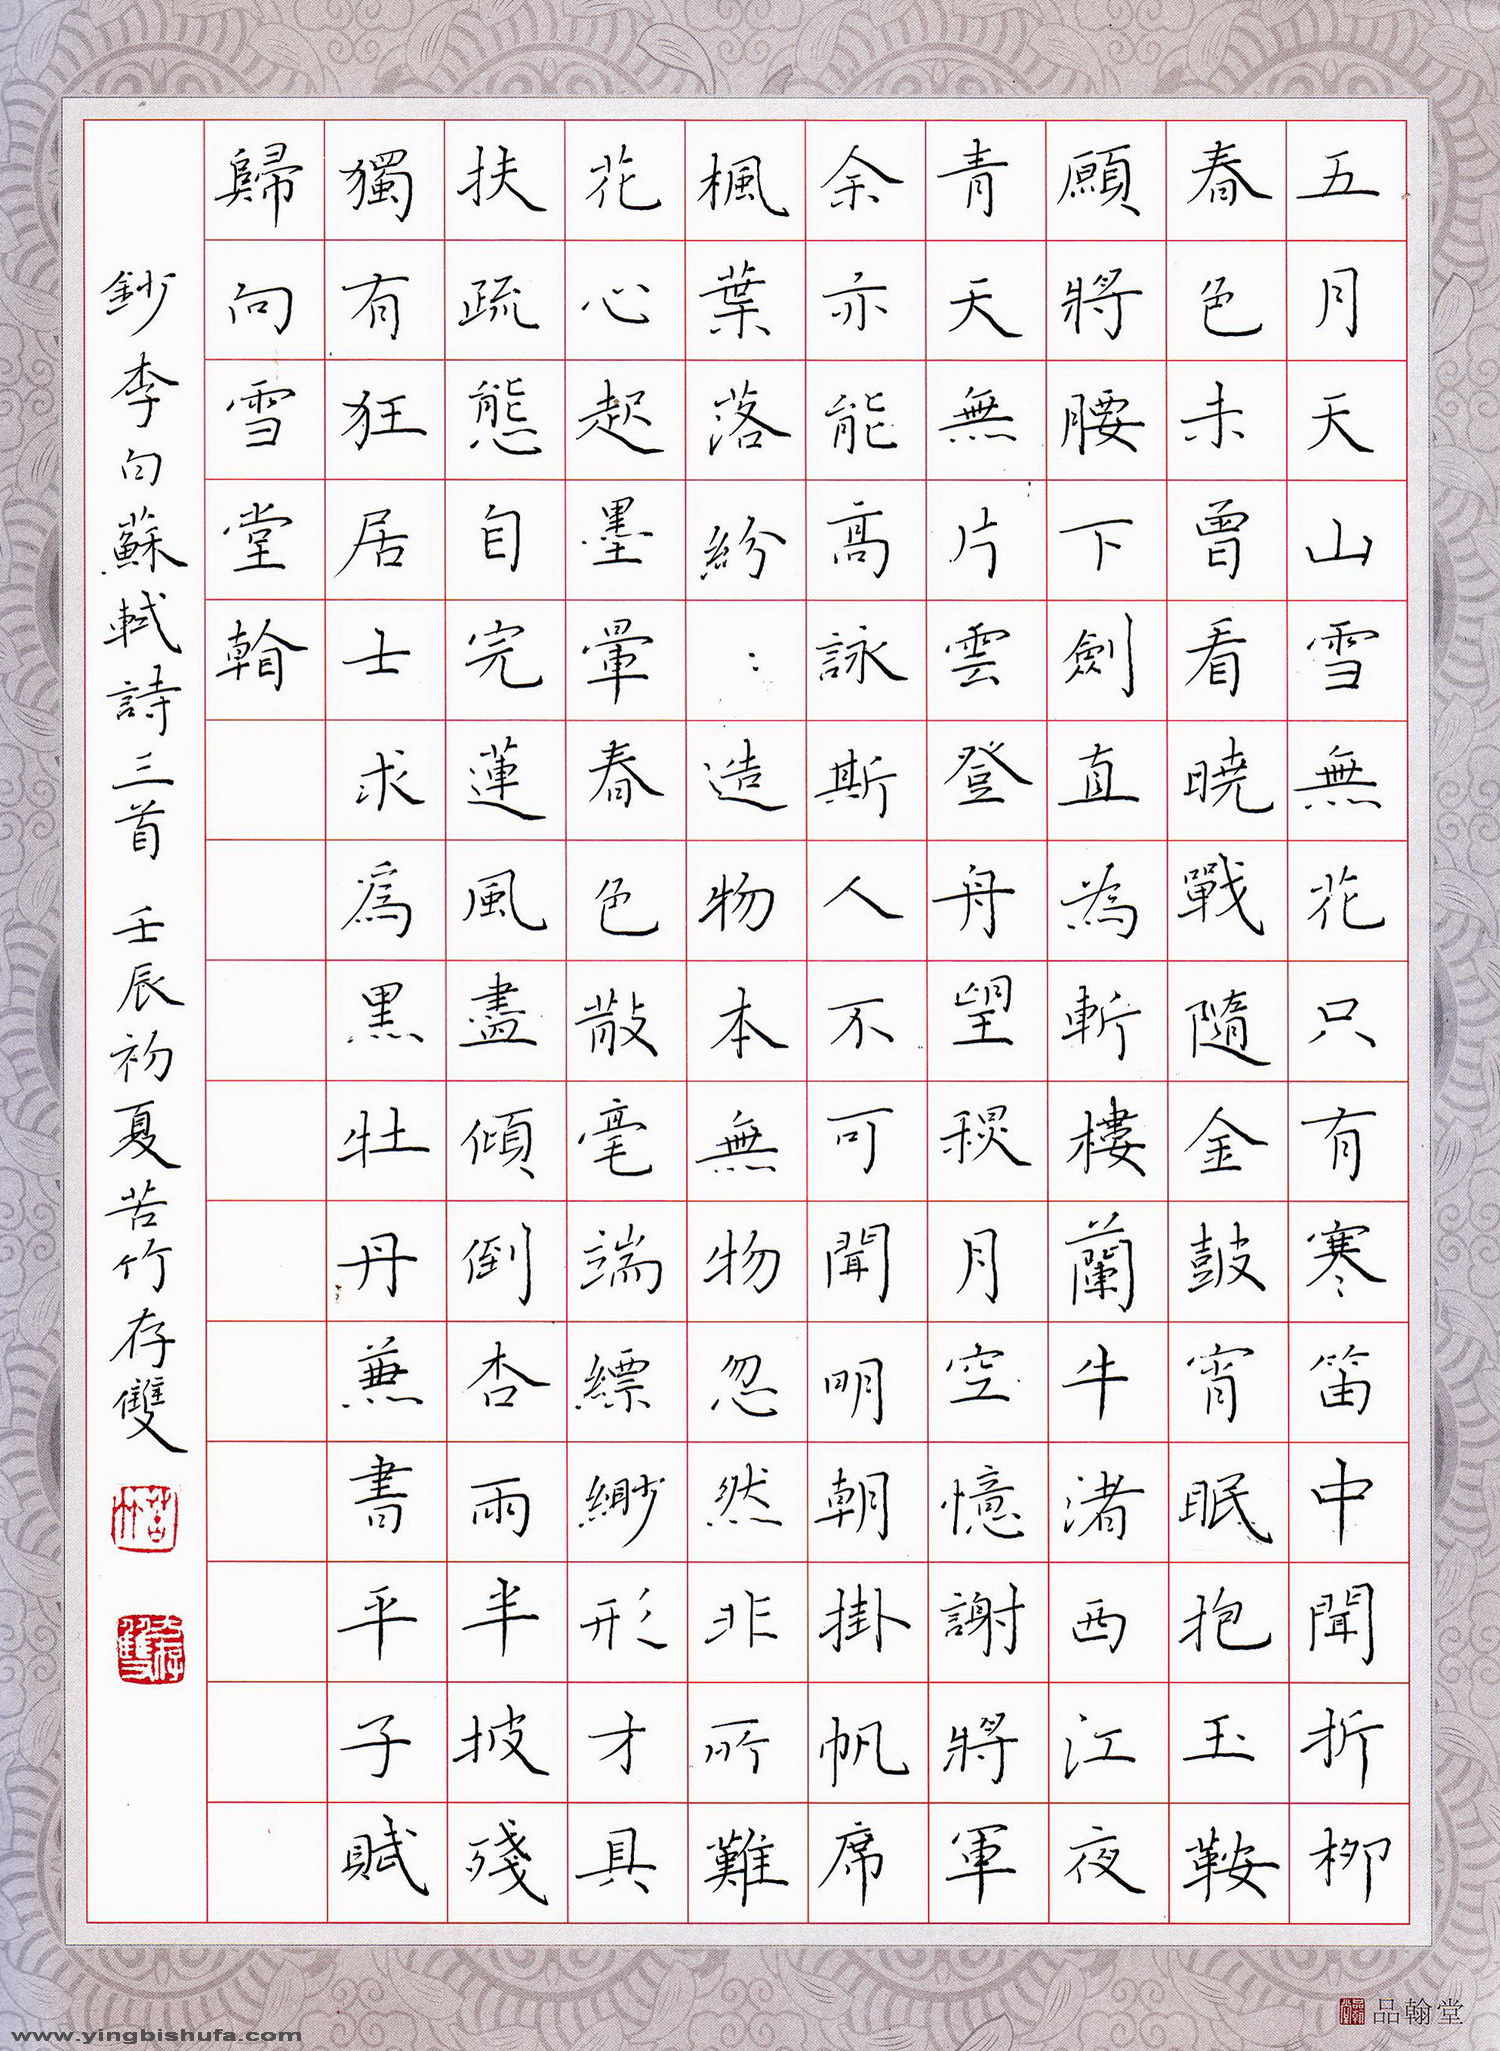 五月天山雪無花只有寒笛中聞折柳
春色未曾看曉戰隨金鼓宵眠抱玉鞍
願將腰下劍直為斬樓蘭牛渚西江夜
青天無片雲登舟望秋月空憶謝將軍
余亦能高詠斯人不可聞明朝掛帆席
楓葉落紛：造物本無物忽然非所難
花心起墨暈春色散毫端縹緲形才具
扶疏態自完蓮風盡傾倒杏雨半披殘
獨有狂居士求為黑牡丹兼書平子賦
歸向雪堂翰
鈔李白蘇軾詩三首 壬辰初夏苦竹存雙
苦竹
存雙
品翰堂
www.yingbishufa.com